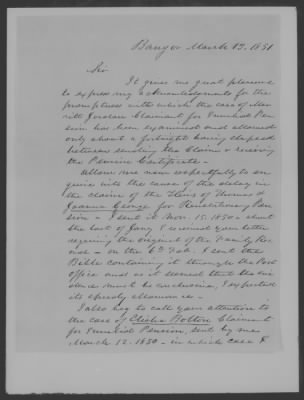 Bangor March 13. 1851
Sir
It gives me great pleasure
to express my acknowledgments for the
promptness with which the case of
Jordan Claimant for Invalid Pen
sion has been examined and allowed
only about a fortnight having elapsed
between sending the Claim & receiving
the Pension Certificate -
Allow me now respectfully to en
quire into the cause of the delay in
the claim of the Heirs of Thomas &
Joanna George for Revolutionary Pen
sion - I sent it Nov. 15. 1850 - about
the last of Jany I received your letter
requiring the original of the Family Re
cord - on the 6th Feb. I sent the
Bible containing it through the Post
Office and as it seemed that the evi
dence must be conclusive, I expected
its speedy allowance -
I also beg to call your attention to
the case of Bolton Claimant
for Invalid Pension, sent by me
March 12. 1850 - in which case I